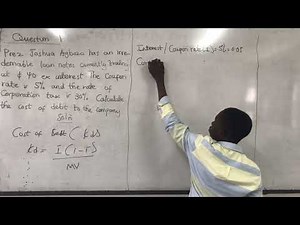 Question 1
Prez Joshua Agbavo has an irre-
deemable loan notes currently trading
at $ 40 ex interest. The coupon
rate is 5% and the rate of
Corporation tax is 30%. Calculate
the cost of debt to the company
Soln
Cost of Debt (Kd)
Kd = I(1-T)
MV
Interest / Coupon rate